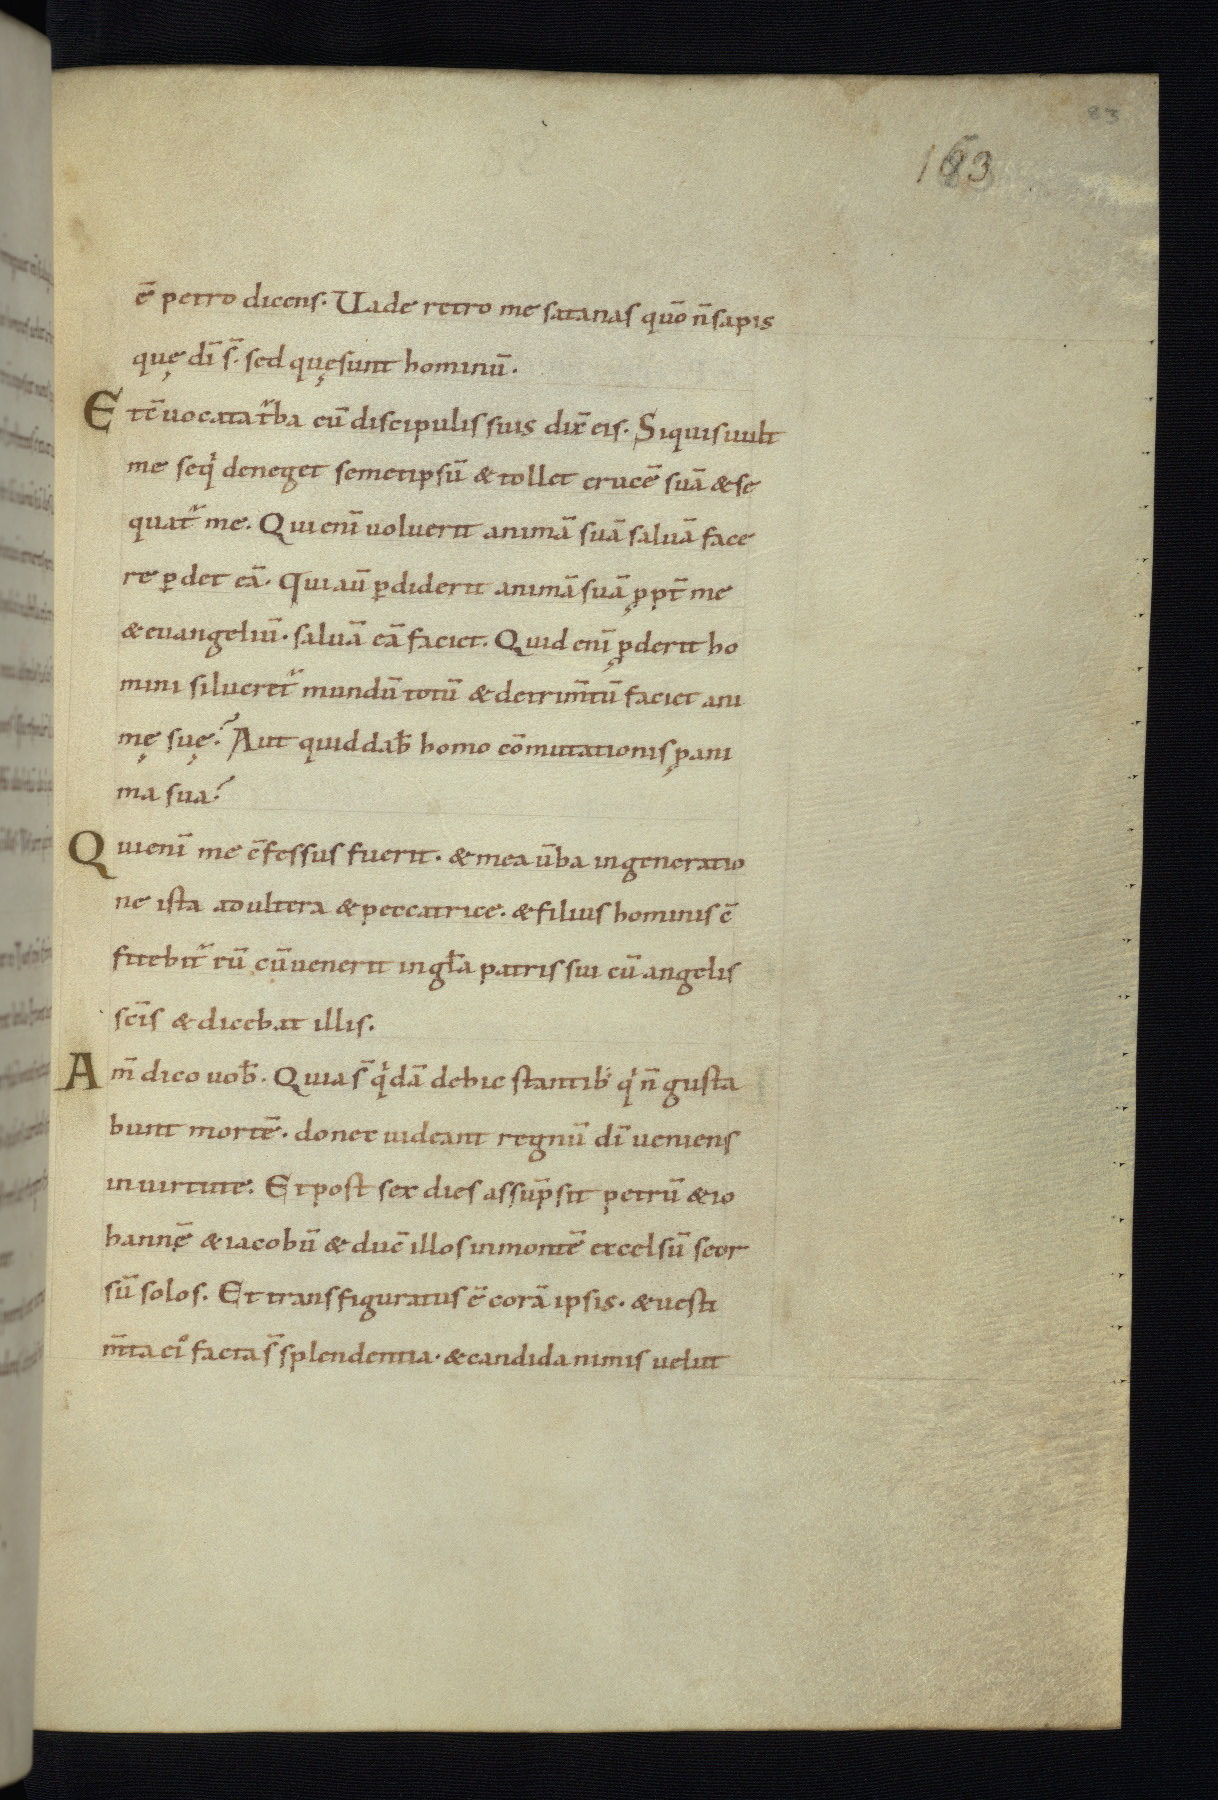 83
163
ē petro dicens. Uade retro me satanas quō n̄ sapis
quę dī s̄. sed quę sunt hominū.
Et ē uocata t̄ba cū discipulis suis dix̄ eis. Siquis uult
me seq̇ deneget semetipsū & tollet crucē suā & se
quat̄ me. Qui enī uoluerit animā suā saluā face
re ꝑdet eā. Qui aū ꝑdiderit animā suā ꝓpt̄ me
& euangeliū. saluā eā faciet. Quid enī ꝓderit ho
mini si lucret̄ mundū totū & detrim̄tū faciet ani
mę suę? Aut quid dab̄ homo cōmutationis ꝓ ani
ma sua?
Qui enī me c̄fessus fuerit. & mea ūba in generatio
ne ista adultera & peccatrice. & filius hominis c̄
fitebit̄ eū cū uenerit in gl̄a patris sui cū angelis
sc̄is & dicebat illis.
Am̄ dico uob̄. Quia s̄ q̇dā de hic stantib; q̇ n̄ gusta
bunt mortē. donec uideant regnū dī ueniens
in uirtute. Et post sex dies assūpsit petrū & io
hannē & iacobū & duc̄ illos in montē excelsū seor
sū solos. Et transfiguratus ē corā ipsis. & uesti
m̄ta ei᷒ facta s̄ splendentia. & candida nimis uelut